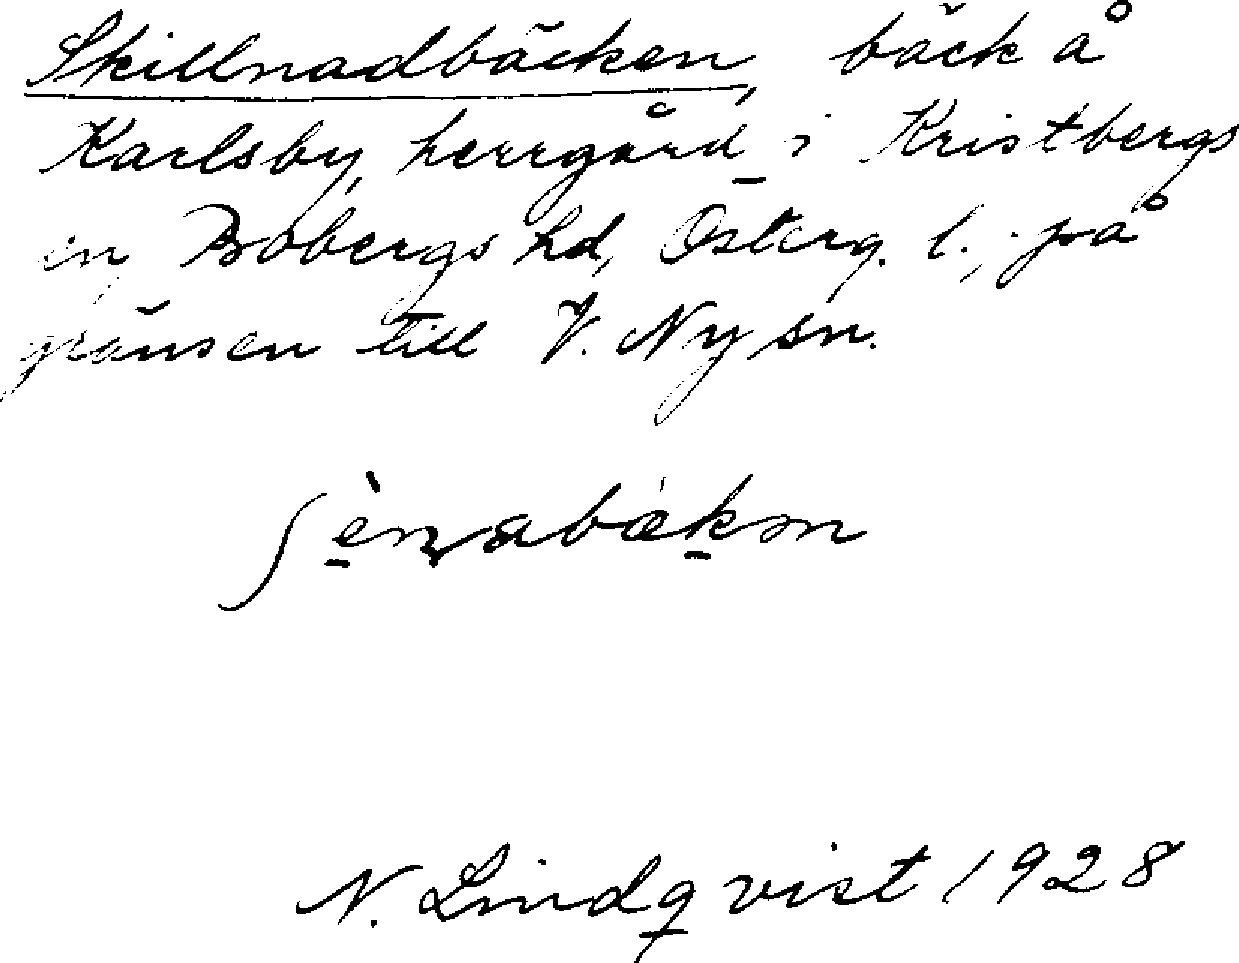 Skillnadbäcken, bäck å
Karlsby, herrgård i Kristbergs
sn, Bobergs hd, Österg. l., på
gränsen till V. Ny sn.
N. Lindqvist 1928